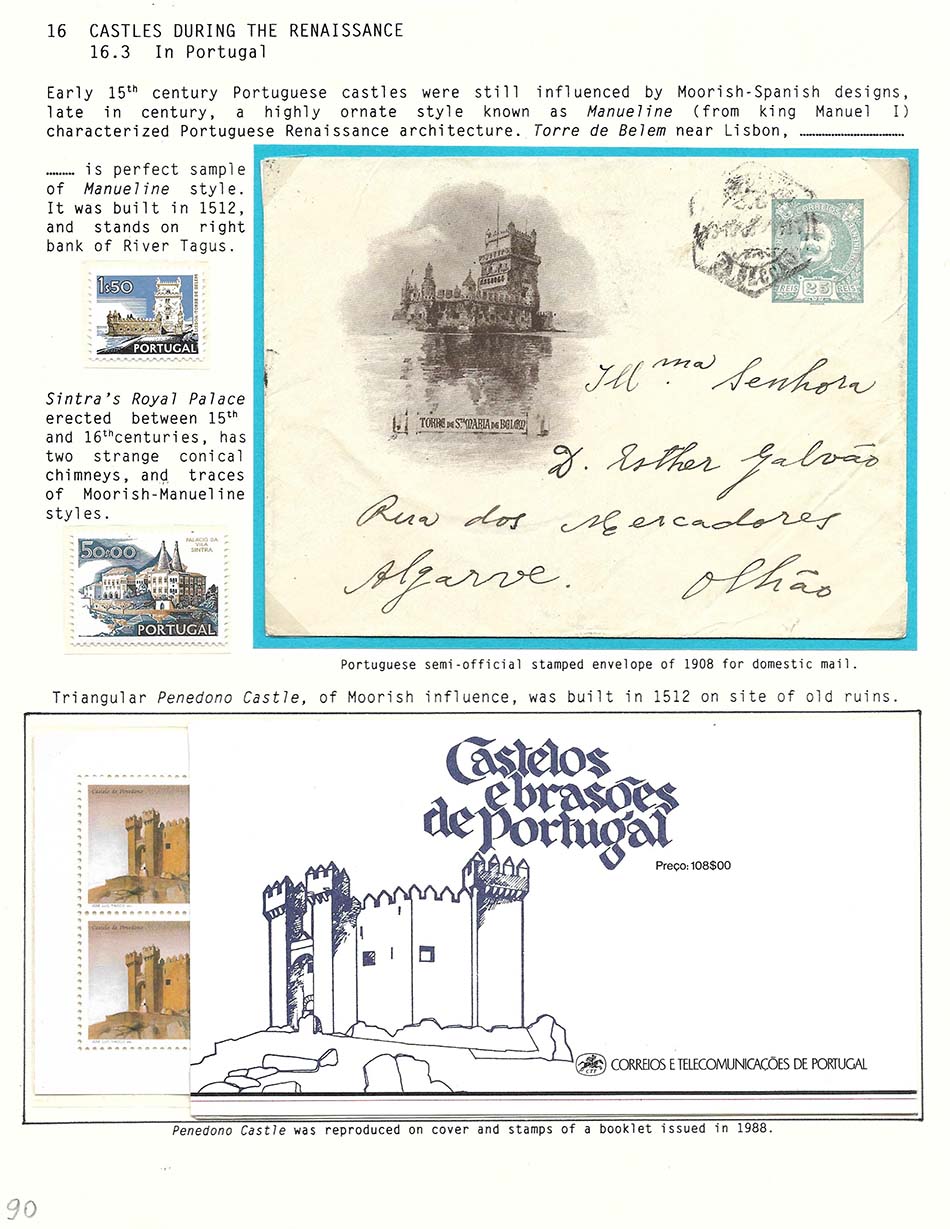 16 CASTLES DURING THE RENAISSANCE
16.3 In Portugal
Early 15th century Portuguese castles were still influenced by Moorish-Spanish designs,
late in century, a highly ornate style known as Manueline (from king Manuel I)
characterized Portuguese Renaissance architecture. Torre de Belem near Lisbon, ..................
......... is perfect sample
of Manueline style.
It was built in 1512,
and stands on right
bank of River Tagus.
1$50
LISBOA-TORRE DE BELEM
PORTUGAL
Sintra's Royal Palace
erected between 15th
and 16th centuries, has
two strange conical
chimneys, and traces
of Moorish-Manueline
styles.
50$00
PALACIO DA
VILA
SINTRA
PORTUGAL
CORREIOS
REIS 25 REIS
TORRE DE STA MARIA DE BELEM
Ill.ma Senhora
D. Esther Galvão
Rua dos Mercadores
Algarve. Olhão
Portuguese semi-official stamped envelope of 1908 for domestic mail.
Triangular Penedono Castle, of Moorish influence, was built in 1512 on site of old ruins.
Castelo de Penedono
Castelo de Penedono
Castelos
e brasões
de Portugal
Preço: 108$00
CTT
CORREIOS E TELECOMUNICAÇÕES DE PORTUGAL
Penedono Castle was reproduced on cover and stamps of a booklet issued in 1988.
90